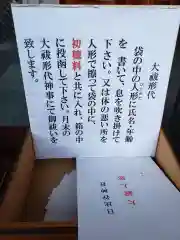 大祓形代
袋の中の人形に氏名・年齢
を書いて、息を吹き掛けて
下さい。又は体の悪い所を
人形で擦って袋の中に、
初穂料と共に入れ、箱の中
に投函して下さい。月末の
大祓形代神事にて御祓いを
致します。